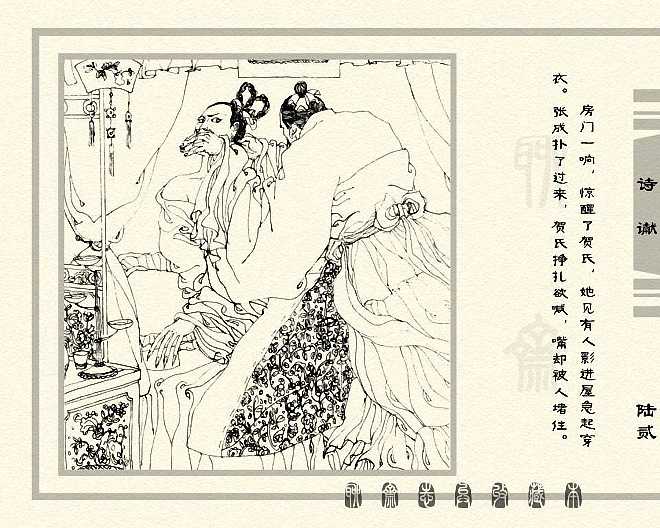 房门一响，惊醒了贺氏，她见有人影进屋急起穿
衣。张成扑了过来，贺氏挣扎欲喊，嘴却被人堵住。
诗谳
陆贰
聊斋志异收藏本